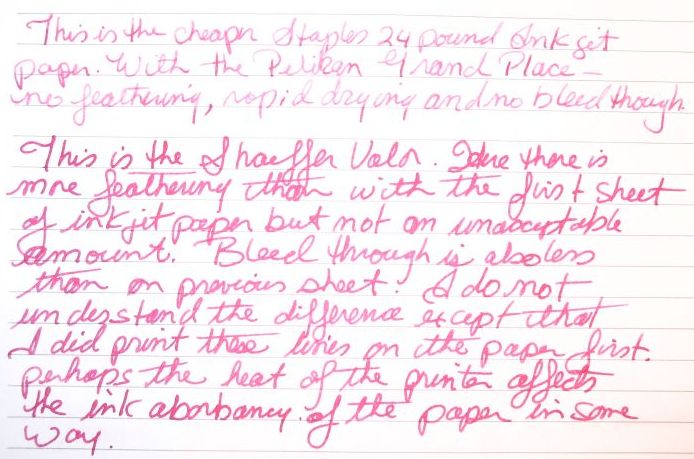 This is the cheaper Staples 24 pound Ink jet
paper. With the Pelikan Grand Place –
no feathering, rapid drying and no bleed though.
This is the Shaeffer Valor. Here there is
more feathering than with the first sheet
of inkjet paper but not an unacceptable
amount. Bleed through is also less
than on previous sheet. I do not
understand the difference except that
I did print these lines on the paper first.
perhaps the heat of the printer affects
the ink aborbancy of the paper in some
way.